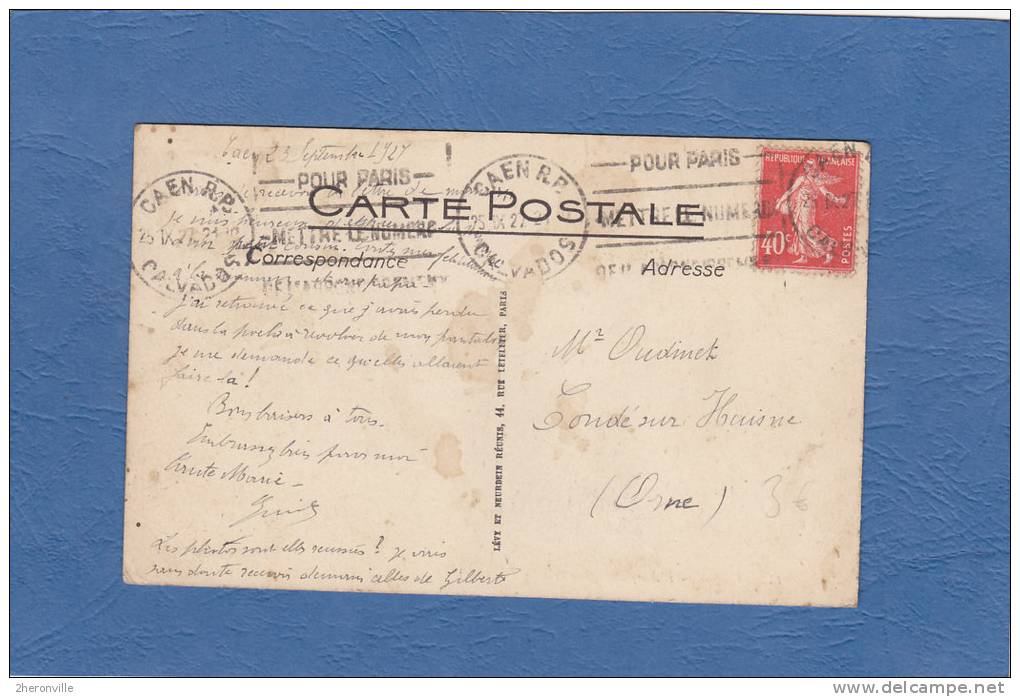 Caen 23 Septembre 1927
POUR PARIS
METTRE LE NUMERO
CAEN R.P.
25 IX 27
CALVADOS
POUR PARIS
METTRE LE NUMERO
CAEN R.P.
25 IX 27
CALVADOS
REPUBLIQUE FRANÇAISE
40c
POSTES
CARTE POSTALE
Correspondance
Adresse
recevoir la lettre de
Je suis heureux
petit cousin
J'ai retrouvé ce que j'avais perdu
dans la poche à revolver de mon pantalon
je me demande ce qu'elles allaient
faire là!
Bons baisers à tous.
Embrassez bien pour moi
tante Marie -
Les photos sont elles reussies? je vais
sans doute recevoir demain celles de Gilberte
LÉVY ET NEURDEIN RÉUNIS, 44, RUE LETELLIER, PARIS
Mr Oudinet
Condé sur Huisne
(Orne)
3€
2heronville
delcampe.net